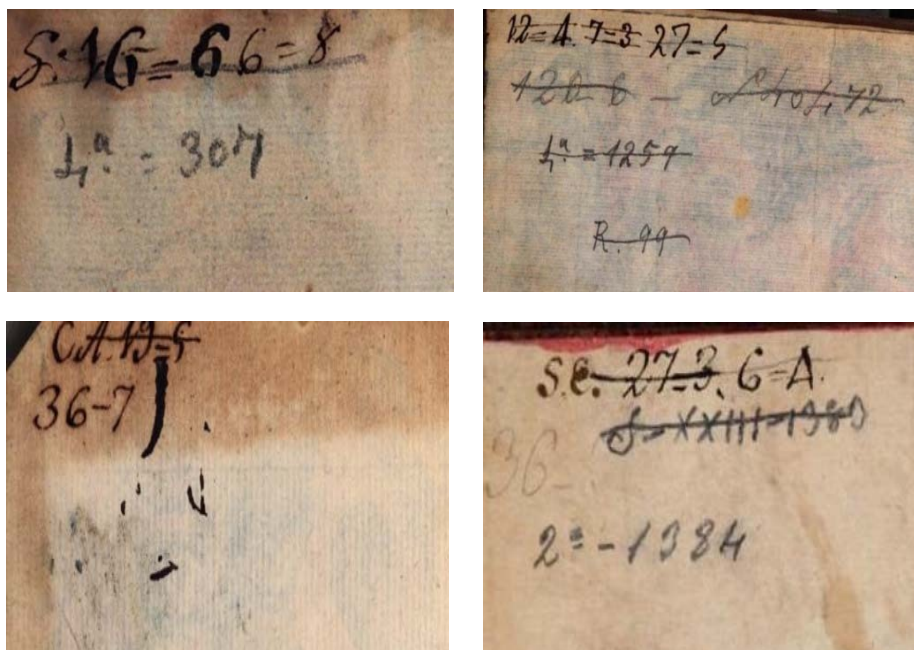 S. 16=6 6=8
4ª = 307
12=A. 7=3 27=5
120-6 -
4ª = 1259
R. 99
C.A. 19=5
36-7
S.C. 27=3. 6=A.
S-XXIII-1383
36-
2ª-1384